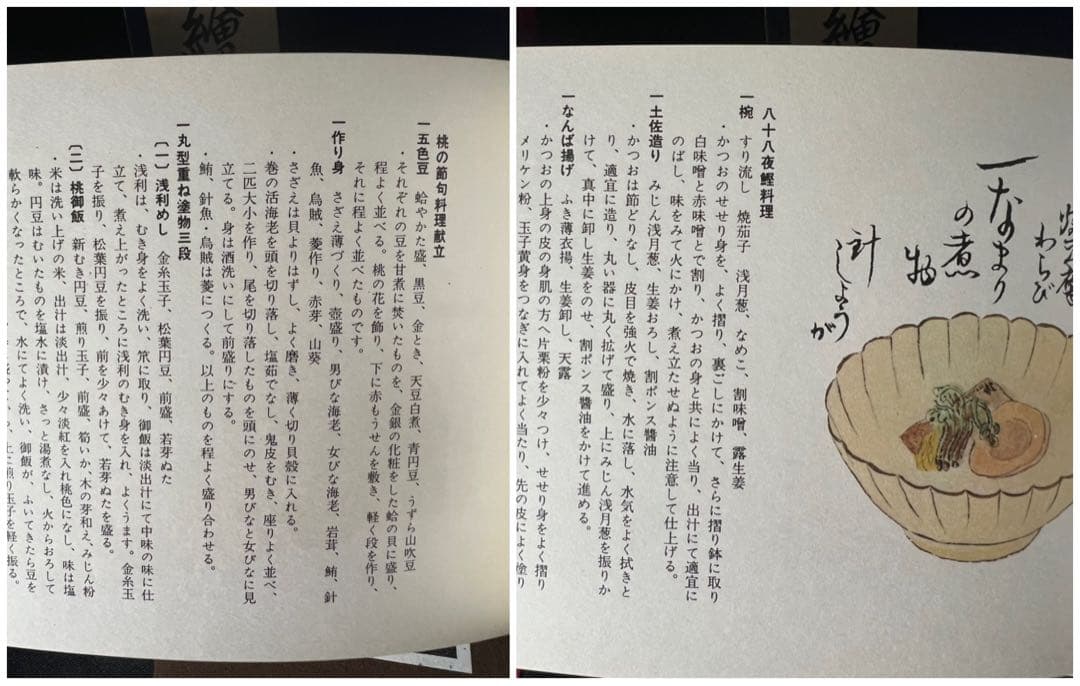 繪
桃の節句料理献立
一五色豆　蛤やかた盛、黒豆、金とき、天豆白煮、青円豆、うずら山吹豆
・それぞれの豆を甘煮に焚いたものを、金銀の化粧をした蛤の貝に盛り、
程よく並べる。桃の花を飾り、下に赤もうせんを敷き、軽く段を作り、
それに程よく並べたものです。
一作り身　さざえ薄づくり、壺盛り、男びな海老、女びな海老、岩茸、鮪、針
魚、烏賊、菱作り、赤芽、山葵
・さざえは貝よりはずし、よく磨き、薄く切り貝殻に入れる。
・巻の活海老を頭を切り落し、塩茹でなし、鬼皮をむき、座りよく並べ、
二匹大小を作り、尾を切り落したものを頭にのせ、男びなと女びなに見
立てる。身は酒洗いにして前盛りにする。
・鮪、針魚・烏賊は菱につくる。以上のものを程よく盛り合わせる。
一丸型重ね塗物三段
〔一〕浅利めし　金糸玉子、松葉円豆、前盛、若芽ぬた
・浅利は、むき身をよく洗い、笊に取り、御飯は淡出汁にて中味の味に仕
立て、煮え上がったところに浅利のむき身を入れ、よくうます。金糸玉
子を振り、松葉円豆を振り、前を少々あけて、若芽ぬたを盛る。
〔二〕桃御飯　新むき円豆、煎り玉子、前盛、筍いか、木の芽和え、みじん粉
・米は洗い上げの米、出汁は淡出汁、少々淡紅を入れ桃色になし、味は塩
味。円豆はむいたものを塩水に漬け、さっと湯煮なし、火からおろして
軟らかくなったところで、水にてよく洗い、御飯が、ふいてきたら豆を
上に煎り玉子を軽く振る。
繪
わらび
一なまり
の煮
物
針しょうが
八十八夜鰹料理
一椀　すり流し　焼茄子　浅月葱、なめこ、割味噌、露生姜
・かつおのせせり身を、よく摺り、裏ごしにかけて、さらに摺り鉢に取り
白味噌と赤味噌とで割り、かつおの身と共によく当り、出汁にて適宜に
のばし、味をみて火にかけ、煮え立たせぬように注意して仕上げる。
一土佐造り　みじん浅月葱、生姜おろし、割ポンス醬油
・かつおは節どりなし、皮目を強火で焼き、水に落し、水気をよく拭きと
り、適宜に造り、丸い器に丸く拡げて盛り、上にみじん浅月葱を振りか
けて、真中に卸し生姜をのせ、割ポンス醬油をかけて進める。
一なんば揚げ　ふき薄衣揚、生姜卸し、天露
・かつおの上身の皮の身肌の方へ片栗粉を少々つけ、せせり身をよく摺り
メリケン粉、玉子黄身をつなぎに入れてよく当たり、先の皮によく塗り